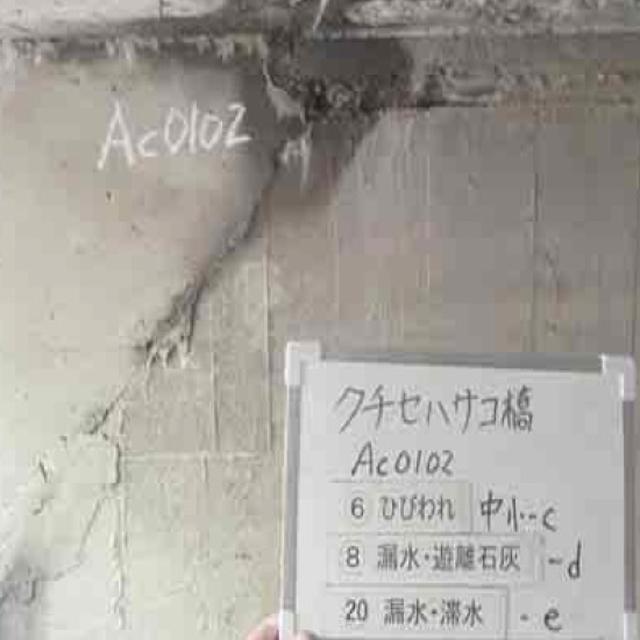 Ac0102
クチセハサコ橋
Ac0102
6 ひびわれ 中小-c
8 漏水・遊離石灰 -d
20 漏水・滞水 -e